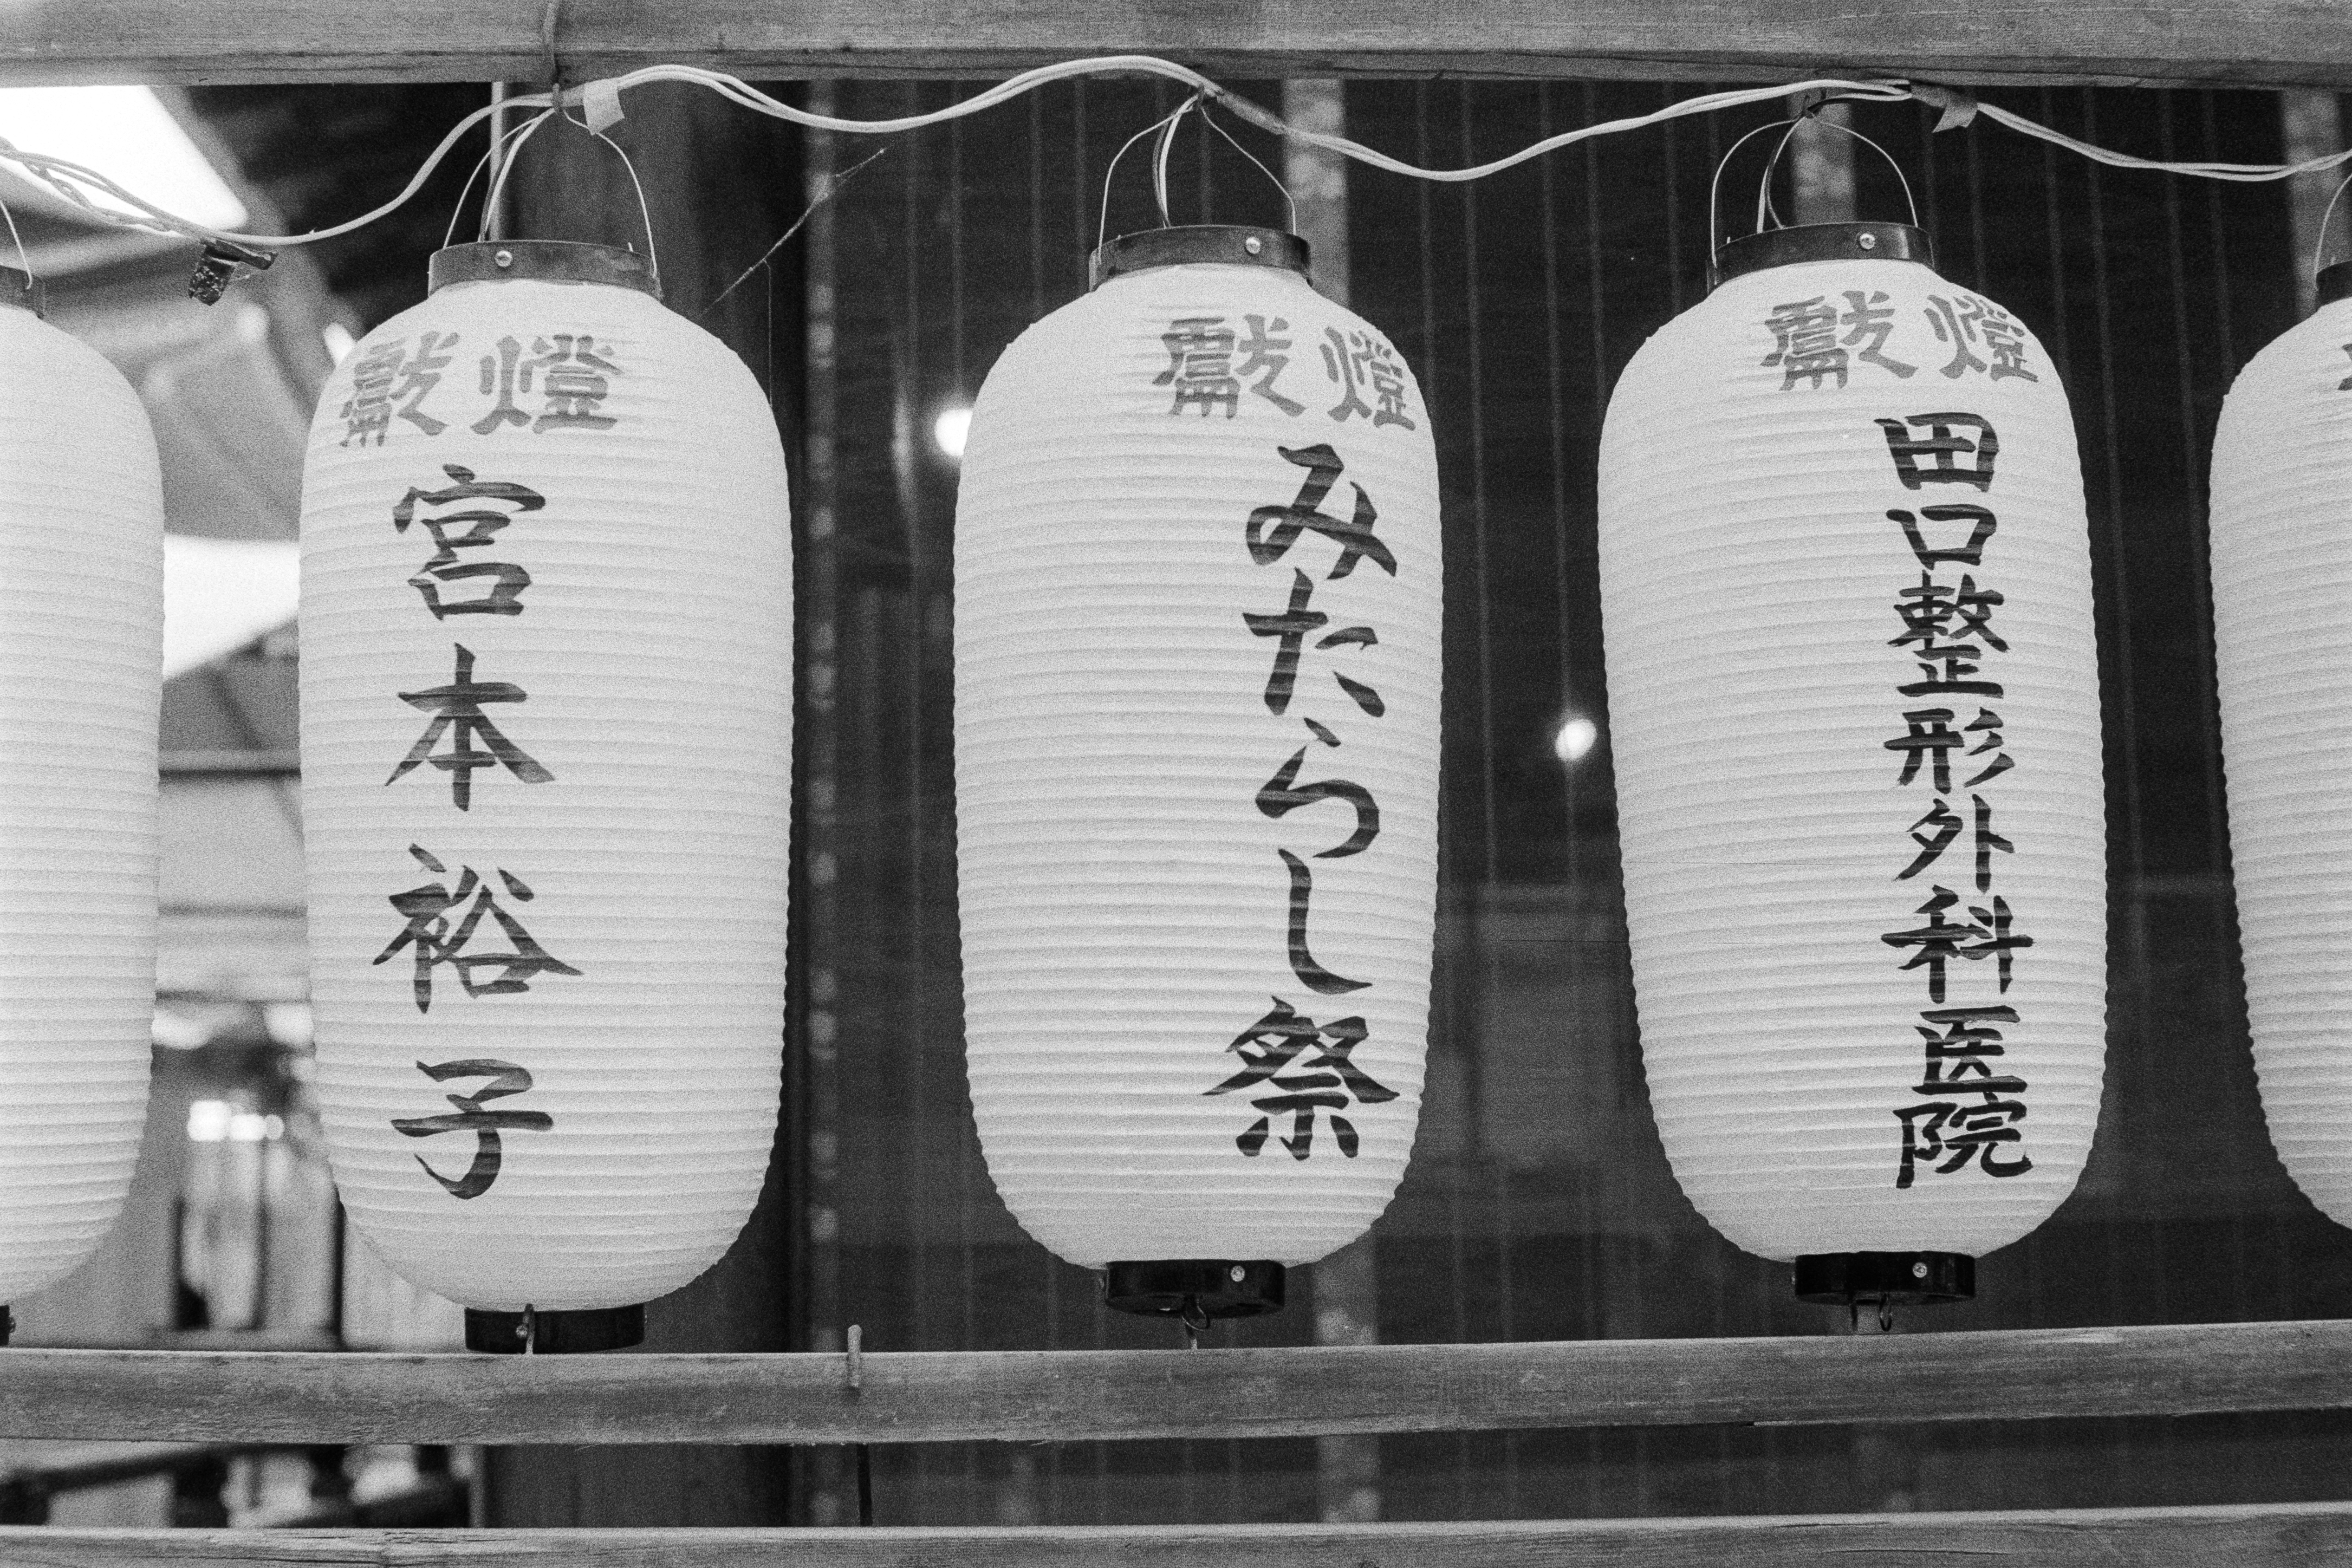 獻燈
宮本裕子
獻燈
みたらし祭
獻燈
田口整形外科医院